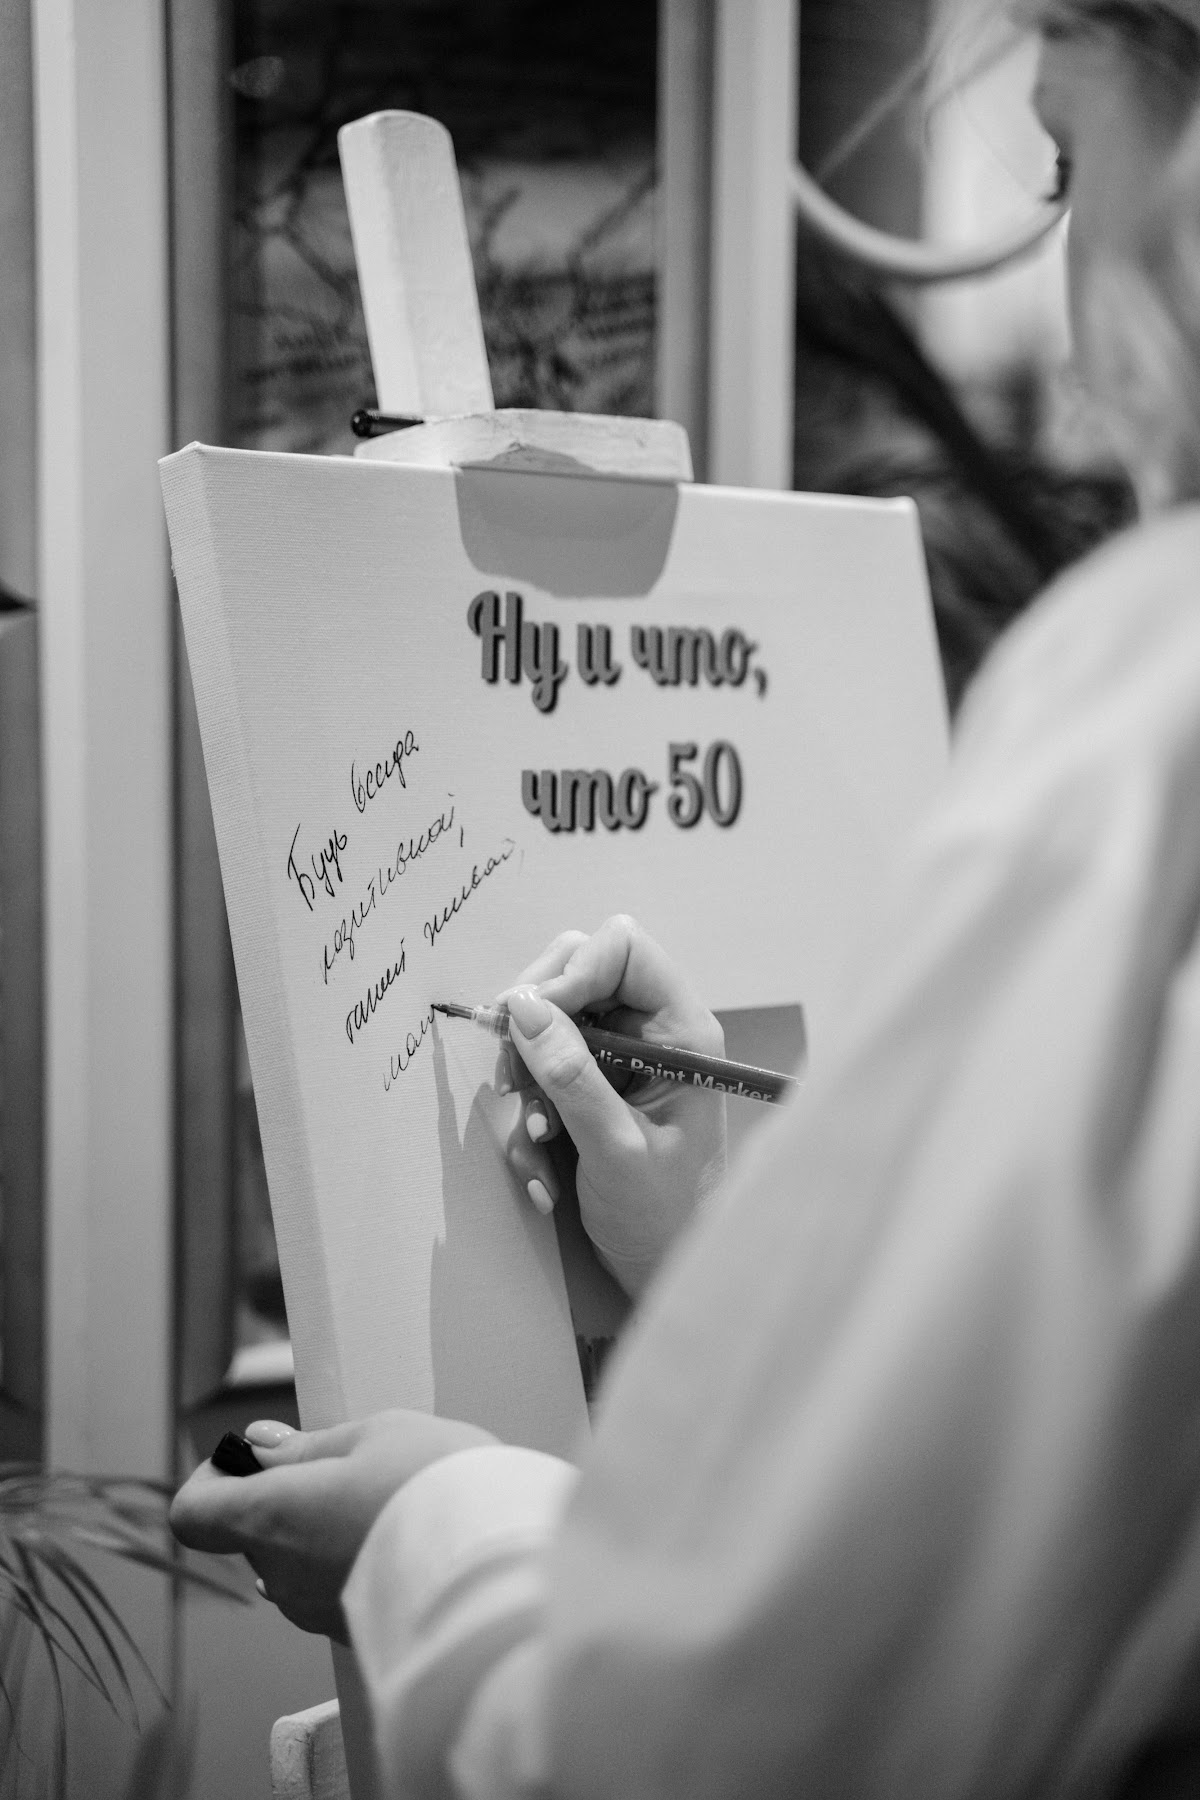 Ну и что,
что 50
Будь всегда
позитивной,
такой живой,
мол
Paint Marker